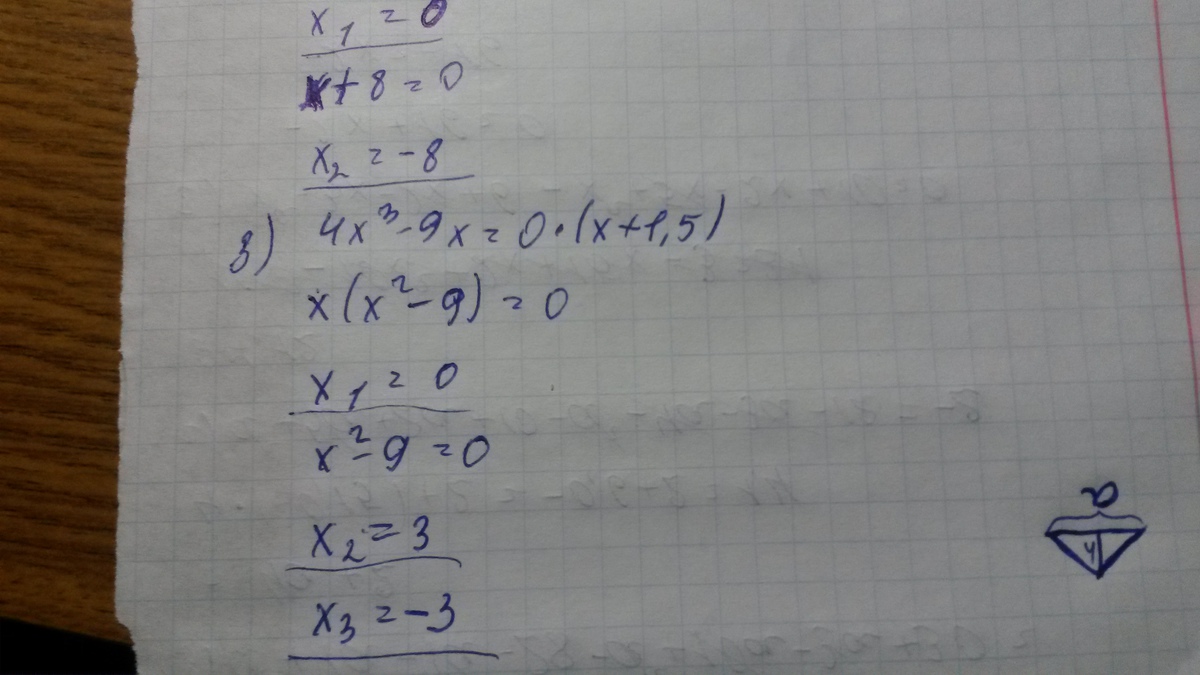 x₁ = 0
x + 8 = 0
x₂ = -8
3) 4x³ - 9x = 0 · (x + 1,5)
x(x² - 9) = 0
x₁ = 0
x² - 9 = 0
x₂ = 3
x₃ = -3
a
h